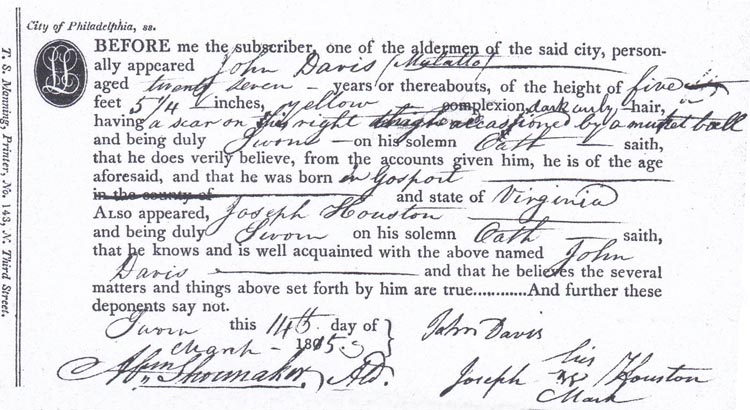 City of Philadelphia, ss.
BEFORE me the subscriber, one of the aldermen of the said city, person-
ally appeared John Davis (Mulatto)
aged twenty seven – years or thereabouts, of the height of five
feet 5 1/4 – inches, yellow complexion, dark curly hair,
having a scar on his right occasioned by a musket ball
and being duly Sworn – on his solemn Oath – saith,
that he does verily believe, from the accounts given him, he is of the age
aforesaid, and that he was born in Gosport
in the county of and state of Virginia
ALSO appeared, Joseph Houston
and being duly Sworn on his solemn Oath – saith,
that he knows and is well acquainted with the above named John
Davis and that he believes the several
matters and things above set forth by him are true............And further these
deponents say not.
Sworn this 14th day of
March – 1815
John Davis
Abm Shoemaker, Ald.
Joseph his Houston
Mark
T. S. Manning, Printer, No. 143, N. Third Street.